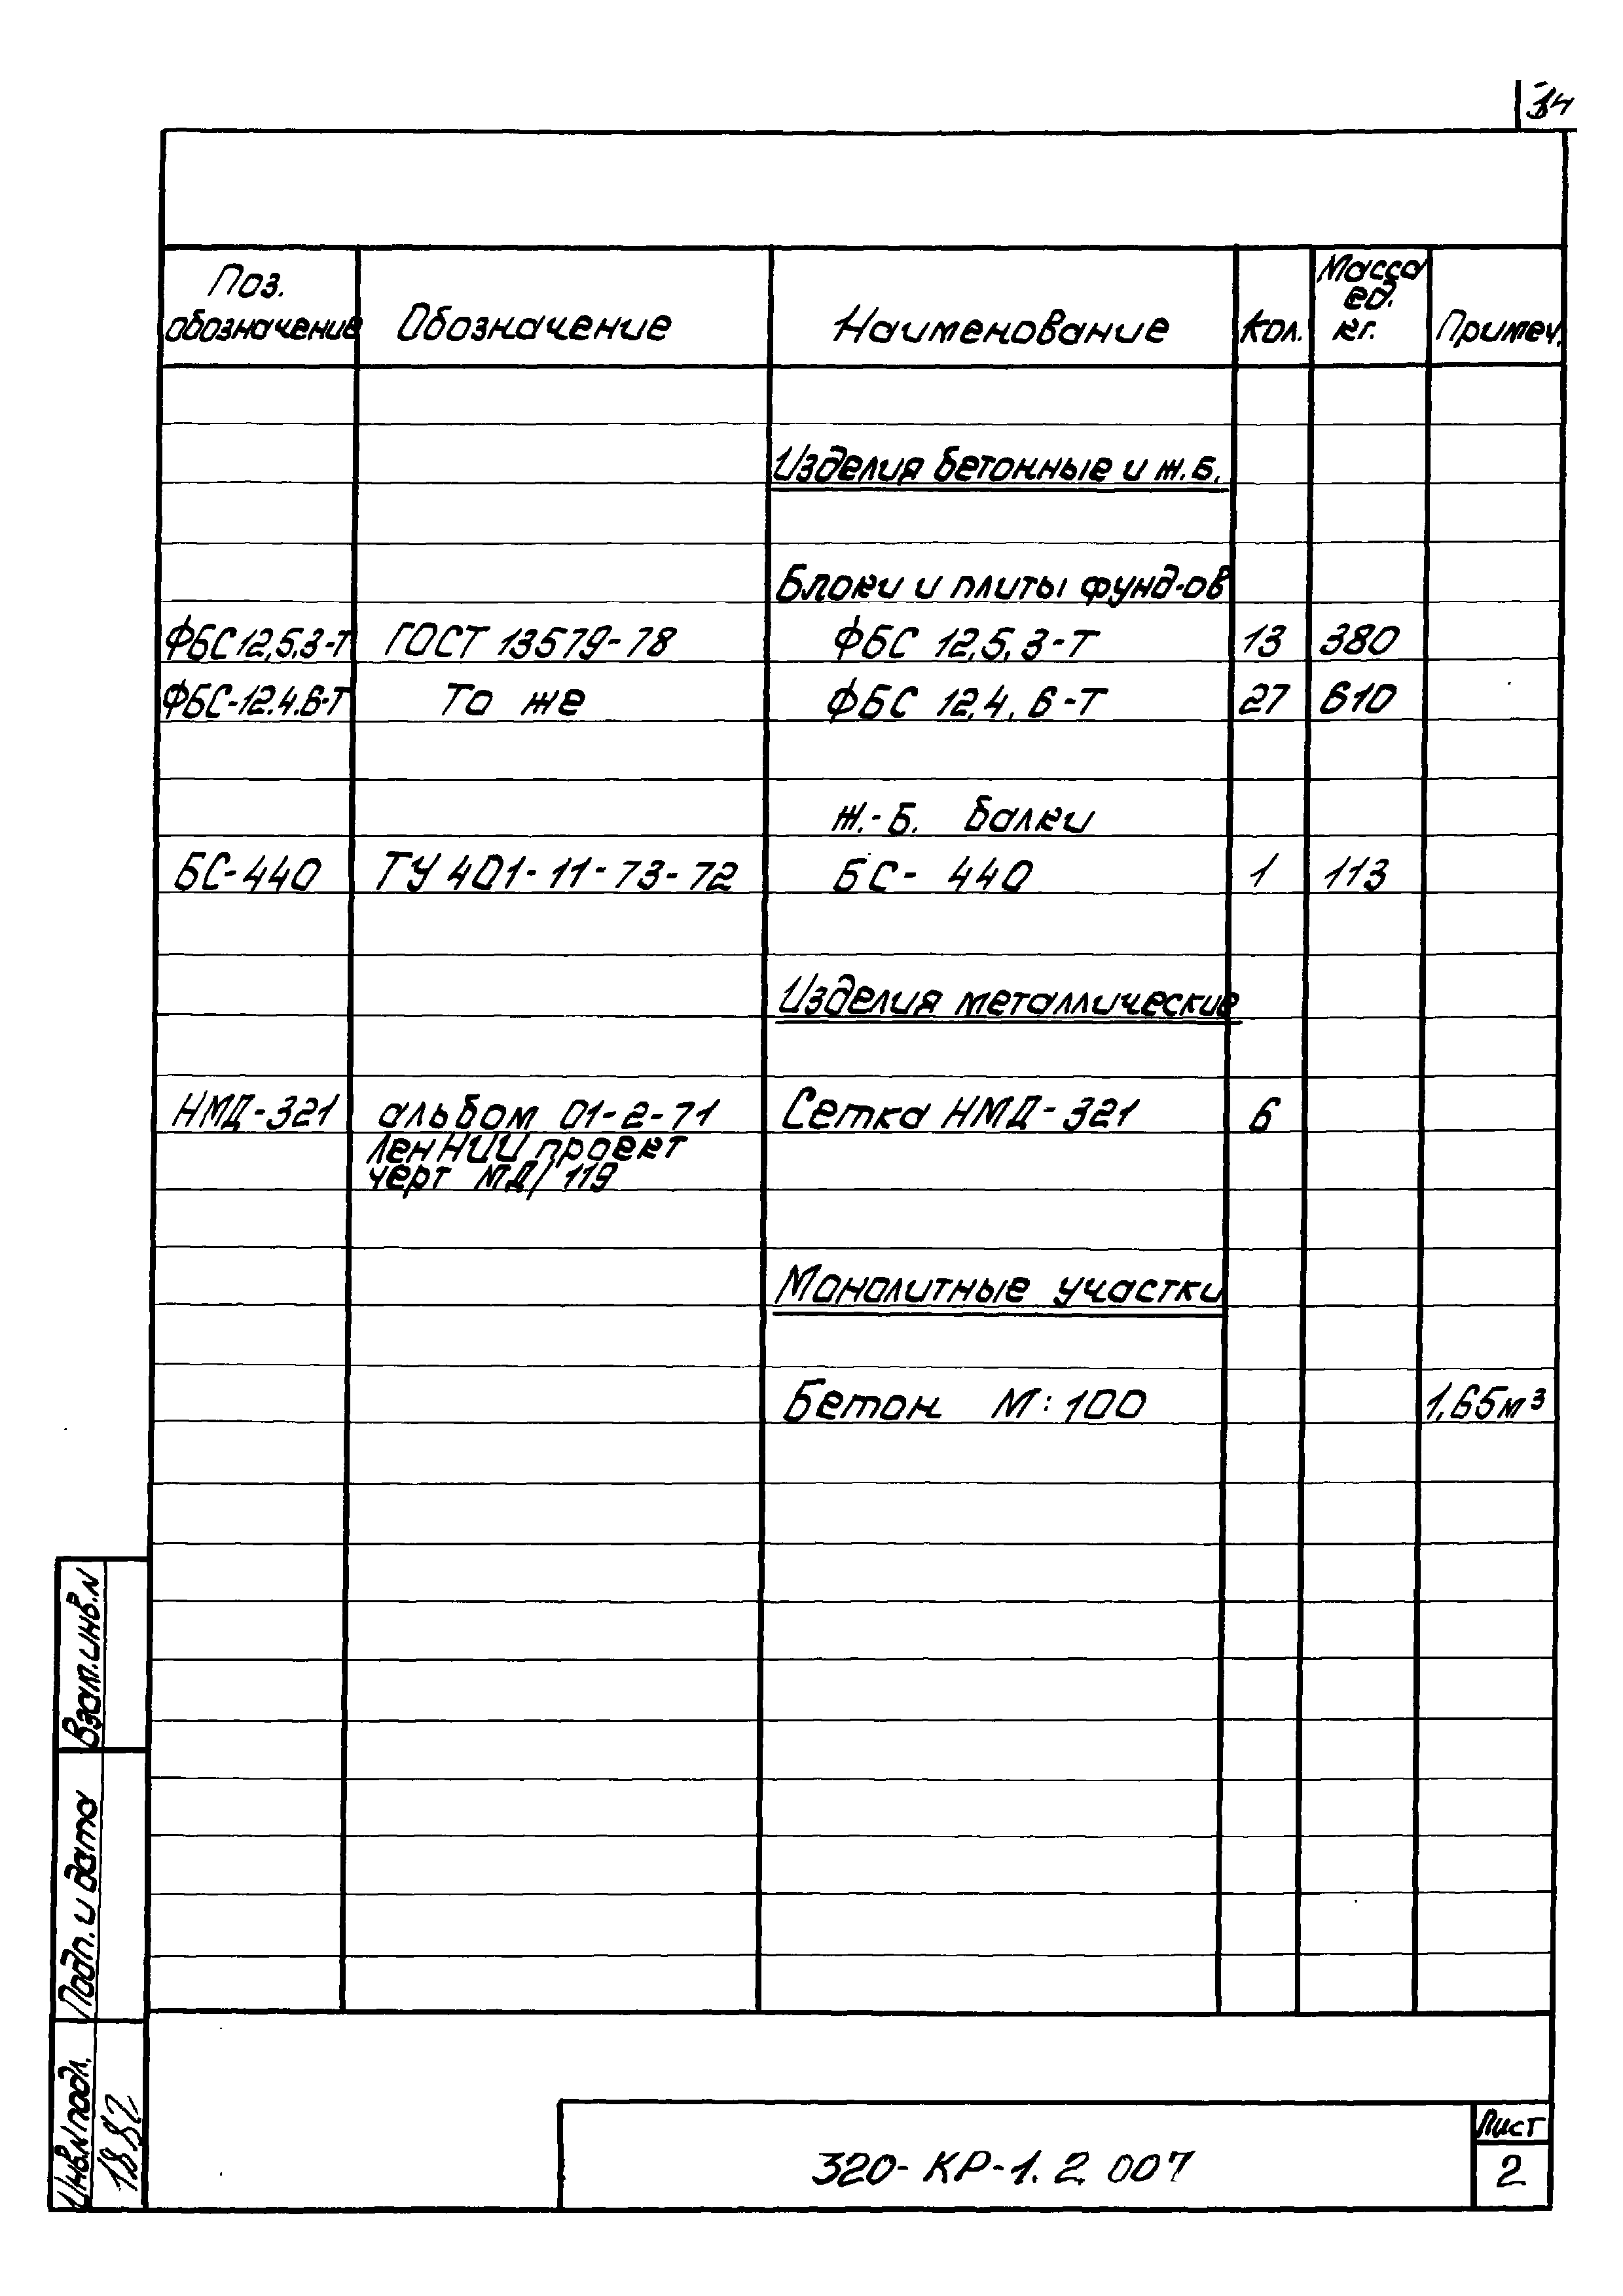 34
Поз. обозначение Обозначение Наименование Кол. Масса ед. кг. Примеч.
Изделия бетонные и ж.б.
Блоки и плиты фунд-ов
ФБС 12,5,3-Т ГОСТ 13579-78 ФБС 12,5,3-Т 13 380
ФБС-12.4.6-Т То же ФБС 12,4,6-Т 27 610
Ж.-Б. балки
БС-440 ТУ 401-11-73-72 БС- 440 1 113
Изделия металлические
НМД-321 альбом 01-2-71 Сетка НМД-321 6
ЛенНИИпроект
черт МД/119
Монолитные участки
Бетон М:100 1,65м³
Взам.инв.N
Подп. и дата
Инв.N подл.
1882
320-КР-1.2 007
Лист
2